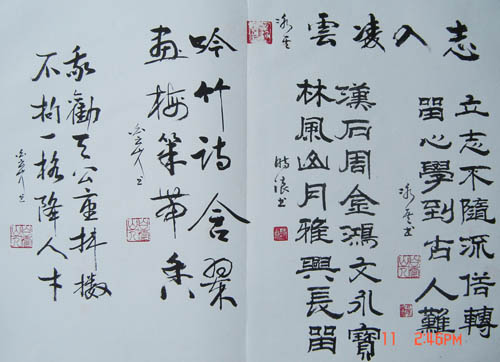 志入凌雲
立志不隨流俗轉
留心學到古人難
漢石周金鴻文永寶
林風山月雅興長留
吟竹詩含翠
畫梅筆帶香
我勸天公重抖擻
不拘一格降人才
11 2:46PM